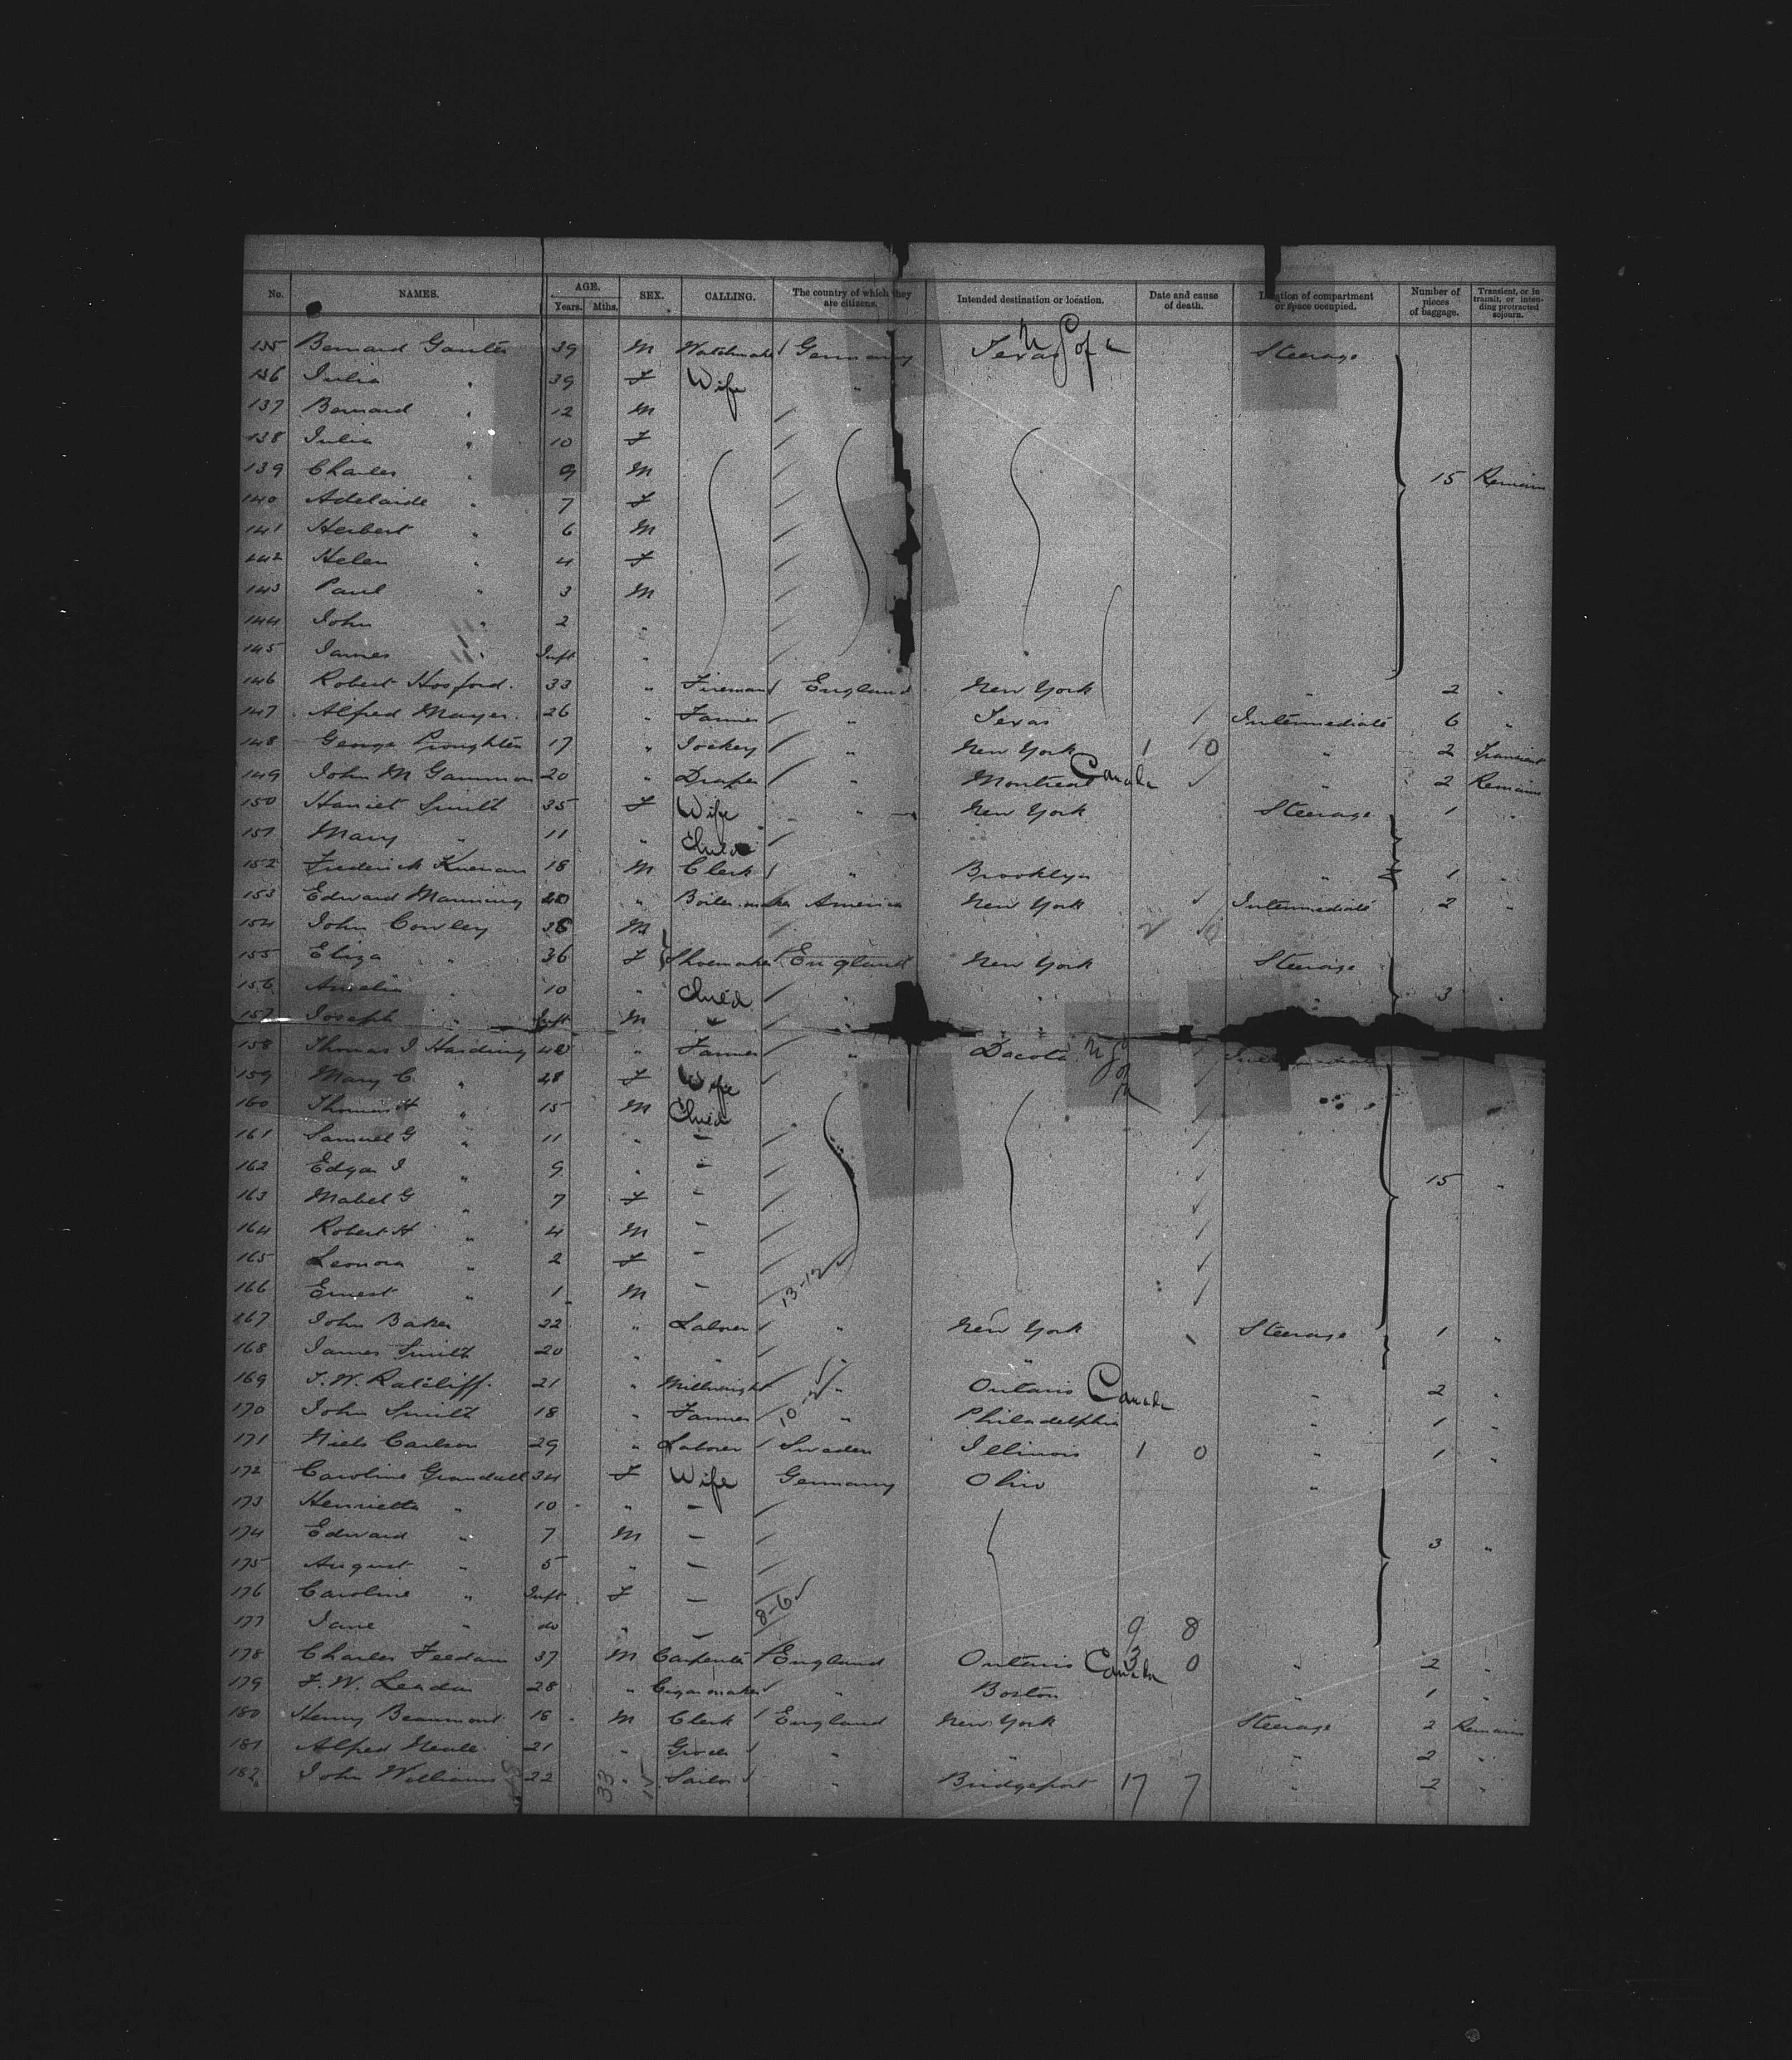 No. NAMES. AGE. Years. Mths. SEX. CALLING. The country of which they are citizens. Intended destination or location. Date and cause of death. Location of compartment or space occupied. Number of pieces of baggage. Transient, or in transit, or intending protracted sojourn.
135 Bernard 39 M Watchmaker Germany Texas Steerage
136 Julia " 39 F Wife "
137 Bernard " 12 M
138 Julia " 10 F
139 Charles " 9 M 15 Remain
140 Adelaide " 7 F
141 Herbert " 6 M
142 Helen " 4 F
143 Paul " 3 M
144 John " 2 "
145 James " Inft "
146 Robert Hosford. 33 " Fireman England New York " 2 "
147 Alfred Mayer. 26 " Farmer " Texas Intermediate 6 "
148 George 17 " Jockey " New York 1 0 " 2 Transient
149 John M Gammon 20 " Draper " Montreal Canada " 2 Remains
150 Harriet Smith 35 F Wife " New York Steerage 1 "
151 Mary " 11 " Child
152 Frederick 18 M Clerk " Brooklyn " 1 "
153 Edward Manning 20 " Boiler maker America New York Intermediate 2 "
154 John Cowley 36 M 2 0
155 Eliza " 36 F Shoemaker England New York Steerage
156 Amelia " 10 " Child " " " 3 "
157 Joseph " Inft M " "
158 Thomas J Harding 40 " Farmer " Dacota Intermediate
159 Mary C. " 28 F Wife
160 Thomas H " 15 M Child
161 Samuel G " 11 " –
162 Edgar J " 9 " –
163 Mabel G " 7 F – 15 "
164 Robert H " 4 M –
165 Leonora " 2 F –
166 Ernest " 1 M – 13-12
167 John Baker 22 " Laborer " New York Steerage 1 "
168 James Smith 20 " " " "
169 J. W. Ratcliff. 21 " Millwright " Ontario Canada " 2 "
170 John Smith 18 " Farmer " Philadelphia " 1 "
171 Niels Carlson 29 " Laborer Sweden Illinois 1 0 " 1 "
172 Caroline 34 F Wife Germany Ohio "
173 Henrietta " 10 " –
174 Edward " 7 M – 3 "
175 August " 5 " –
176 Caroline " Inft F – 8-6
177 Jane " do " – 9 8
178 Charles 37 M Carpenter England Ontario Canada 3 0 " 2 "
179 28 " Cigarmaker " Boston " 1 "
180 Henry Beaumont 18 M Clerk England New York Steerage 2 Remains
181 Alfred 21 " Grocer " " " 2 "
182 John Williams 22 " Sailor " Bridgeport 17 7 " 2 "
33 15